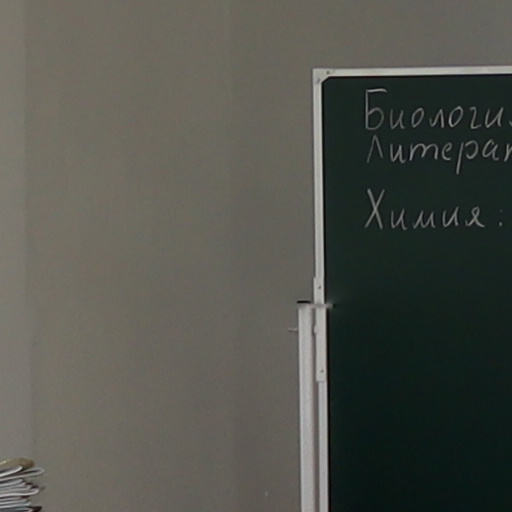 Биологи
Литера
Химия: